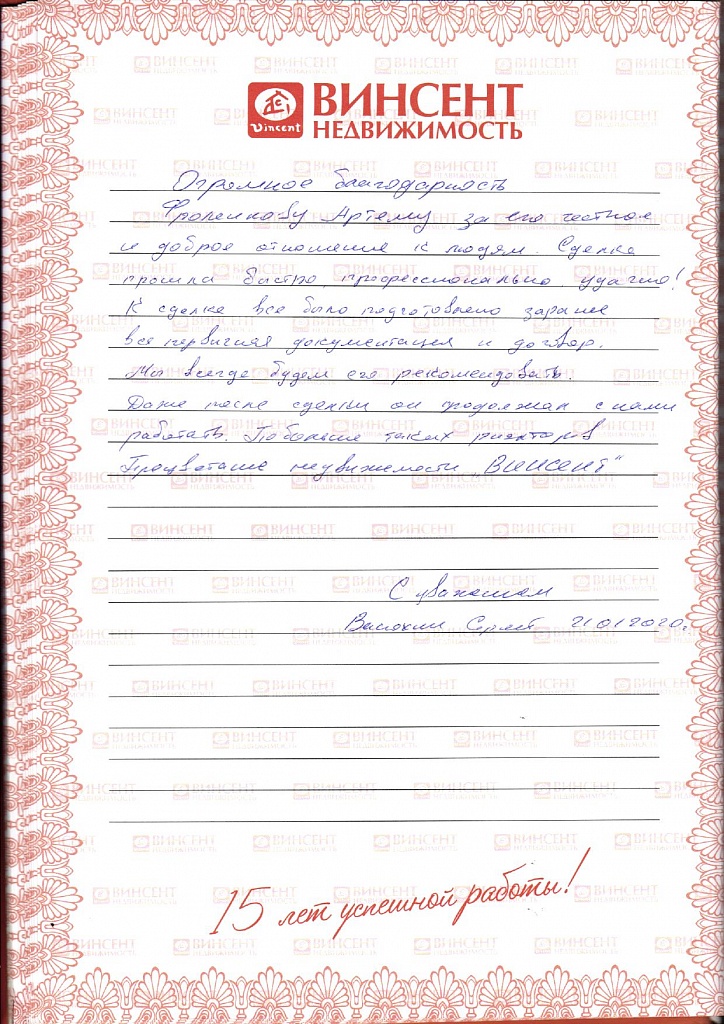 Vincent
ВИНСЕНТ
НЕДВИЖИМОСТЬ
Огромное благодарность
Артему за его честное
и доброе отношение к людям. Сделка
прошла быстро, профессионально, удачно!
К сделке все было подготовлено заранее
вся первичная документация и договор.
Мы всегда будем его рекомендовать.
Даже после сделки он продолжал с нами
работать. Побольше таких риэлторов
Процветание недвижимости "Винсент"
С уважением
Сергей 21.01.2020г.
15 лет успешной работы!